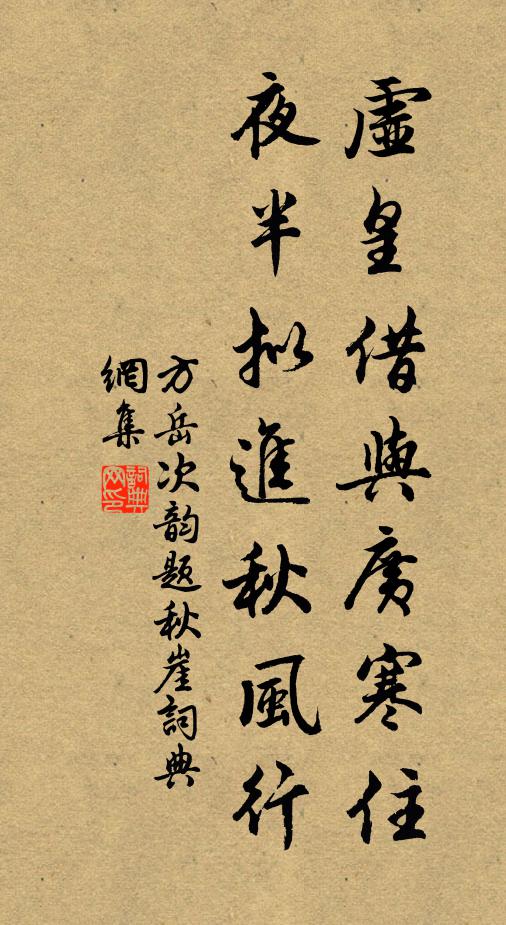 虛皇借與廣寒住
夜半拟進秋風行
方岳次韵题秋崖詞典
網集
詞典
网印